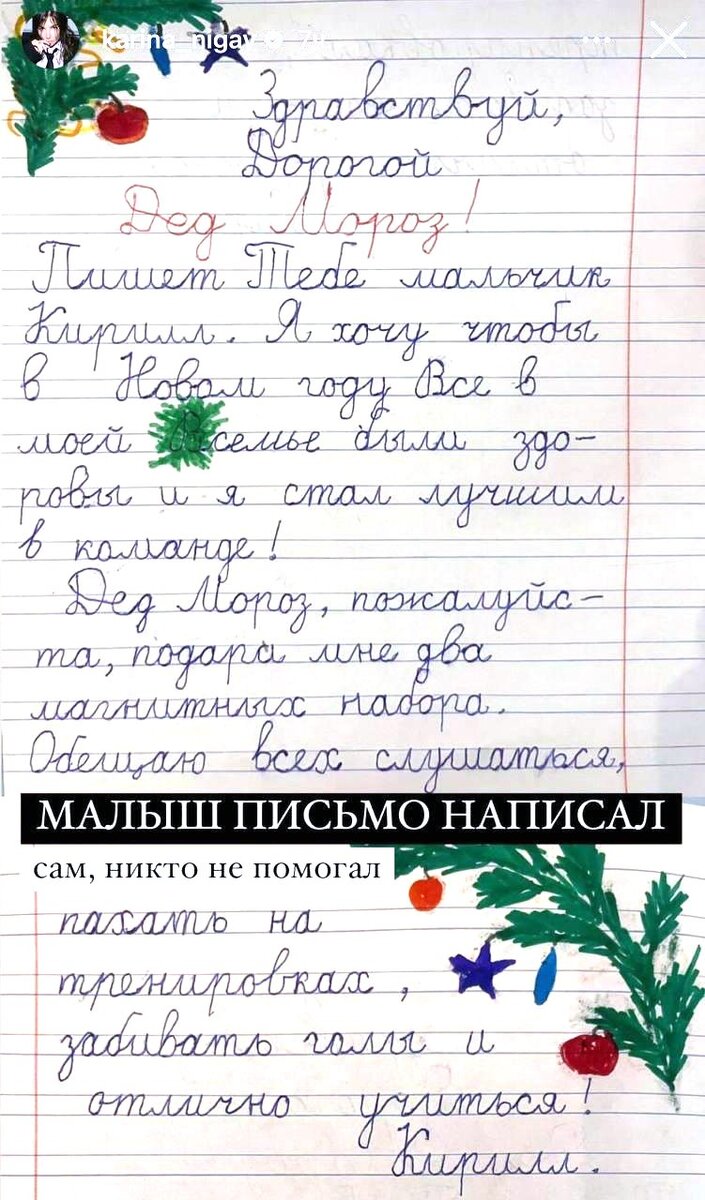 Здравствуй,
Дорогой
Дед Мороз!
Пишет Тебе мальчик
Кирилл. Я хочу чтобы
в Новом году Все в
моей семье были здо-
ровы и я стал лучшим
в команде!
Дед Мороз, пожалуйс-
та, подари мне два
магнитных набора.
Обещаю всех слушаться,
МАЛЫШ ПИСЬМО НАПИСАЛ
сам, никто не помогал
пахать на
тренировках,
забивать голы и
отлично учиться!
Кирилл.